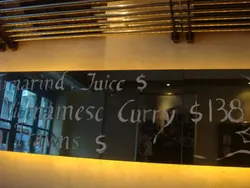 marind Juice $
namese Curry $138
wns $